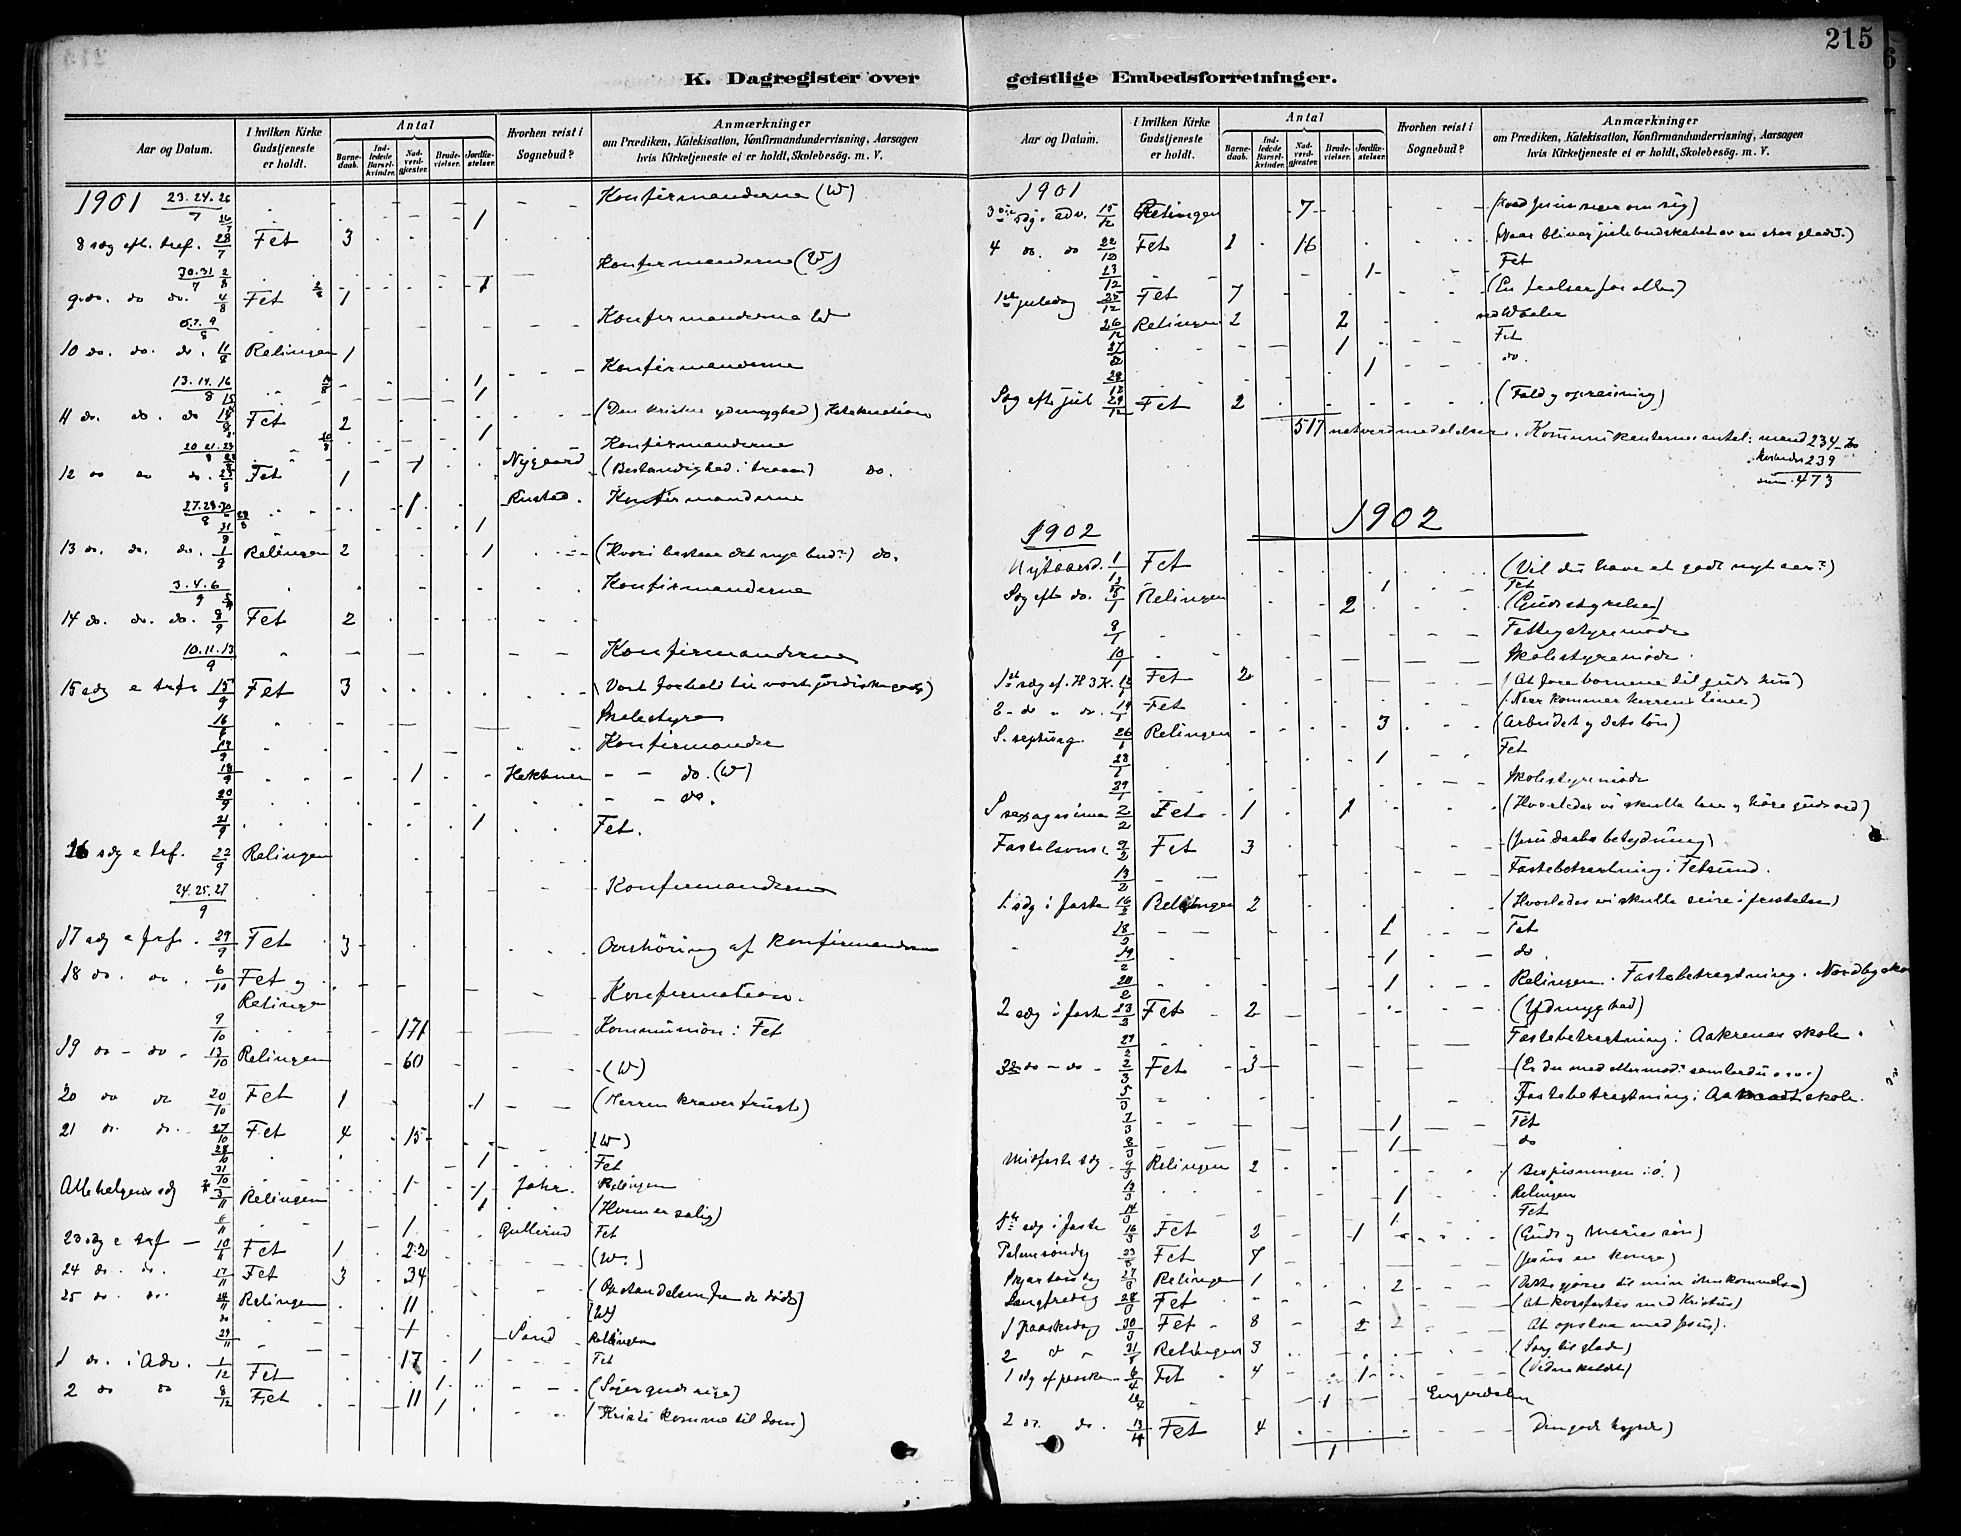 215
K. Dagregister over geistlige Embedsforretninger.
Aar og Datum. I hvilken Kirke Gudstjeneste er holdt. Antal Barnedaab. Indledede Barselkvinder. Nadverdgjester. Brudevielser. Jordfæstelser. Hvorhen reist i Sognebud? Anmærkninger om Prædiken, Katekisation, Konfirmandundervisning, Aarsagen hvis Kirketjeneste ei er holdt, Skolebesøg. m. V.
1901 23.24.26/7 Konfirmanderne (W)
26/7 1
8 søg eft. tref. 28/7 Fet 3
30.31/7 2/8 Konfirmanderne (W)
9 do. do do. 4/8 Fet 1
6.7.9/8 Konfirmanderne W
10 do. do. do. 11/8 Relingen 1
13.14.16/8 Konfirmanderne
11 do. do. do 18/8 Fet 2 (Den kristne ydmyghed) Katekisation
Konfirmanderne
12 do do do. 25/8 Fet 1 Nygaard (Bestandighed i troen) do.
27.28.30/8 1 Rustad. Konfirmanderne
31/8 1
13 do. do. do. 1/9 Relingen 2 1 (Hvori bestaar det nye bud?) do.
3.4.6/9 Konfirmanderne
14 do. do. do. 8/9 Fet 2
10.11.13/9 Konfirmanderne
15 søg e trf. 15/9 Fet 3 (Vort forhold til vort jordiske gods)
16/9 Skolestyre
17/9 Konfirmander
18/9 1 Heksmer do. (W)
20/9 do.
21/9 1 Fet.
16 søg e trf. 22/9 Relingen
24.25.27/9 Konfirmanderne
17 søg e trf. 29/9 Fet 3 Overhöring af Konfirmanderne
18 do. do. 6/10 Fet og Relingen Konfirmation.
9/10 171 Kommunion i Fet
19 do - do - 13/10 Relingen 60 (W)
20 do do 20/10 Fet 1 1 (Herren kræver frugt)
21 do. do. 27/10 Fet 4 15 (W)
28/10 1 Fet
31/10 1 Jahr. Relingen
Allehelgens søg 3/11 Relingen 1 (Hvem er salig)
6/11 1 Gullerud Fet
23 søg e trf - 10/11 Fet 1 22 (W.)
24 do. do. 17/11 Fet 3 34 (Opstandelsen fra de döde)
25 do. do. 24/11 Relingen 11 (W)
29/11 1 Sand Relingen
1 do. i Adv. 1/12 Fet 17 1 Fet
2 do do 8/12 Fet 11 1 (Söger guds rige)
1 (Kristi komme til dom)
Aar og Datum. I hvilken Kirke Gudstjeneste er holdt. Antal Barnedaab. Indledede Barselkvinder. Nadverdgjester. Brudevielser. Jordfæstelser. Hvorhen reist i Sognebud? Anmærkninger om Prædiken, Katekisation, Konfirmandundervisning, Aarsagen hvis Kirketjeneste ei er holdt, Skolebesøg. m. V.
1901
3die søg. adv. 15/12 Relingen 7 (Hvad Jesus siger om sig)
4 do. do 22/12 Fet 1 16 (Naar bliver julebudskabet os en stor glæde.)
23/12 1 Fet
1ste juledag 25/12 Fet 7 (En frelser for alle)
26/12 Relingen 2 2
27/12 1 Fet
28/12 1 do.
Søg efter jul 29/12 Fet 2 (Fald og opreisning)
517 natverdmeddelelser. Kommunikanternes antal: mænd 234
kvinder 239
sum. 473
1902
1902
Nytaarsd. 1/1 Fet (Vil du have et godt nyt aar?)
1 Fet
Søg eft. do. 5/1 Relingen 2 (Guds styrelse)
8/1 Fattigstyremøde
10/1 Skolestyremöde.
1ste søg ef. H 3 K. 12/1 Fet 2 (At före bornene til guds hus)
2 - do - do. 19/1 Fet (Naar kommer herrens time)
S. septuag. 26/1 Relingen 3 (Arbeidet og dets lön)
28/1 1 Fet
29/1 Skolestyremöde
S sexagesima 2/2 Fet 1 1 (Hvorledes vi skulle lære og höre guds ord)
Fastelavns. 9/2 Fet 3 (Jesu daabs betydning)
13/2 Fastebetragtning i Fetsund.
1. søg i faste 16/2 Relingen 2 (Hvorledes vi skulle seire i fristelse)
18/2 1 Fet
19/2 1 do.
20/2 1 Relingen. Fastebetragtning. Nordby
2 søg i faste 23/2 Fet 2 (Ydmyghed)
27/2 Fastebetragtning i Aakrenes skole.
3die do - do - 2/3 Fet 3
5/3 Fastebetragtning i skole.
7/3 1 Fet
8/3 1 do
Midfaste søg 9/3 Relingen 2 (Bespisningen i ö.)
13/3 1 Relingen
14/3 1 Fet
5te søg i faste 16/3 Fet 2 1 (Guds og Marias sön)
Palmesöndag 23/3 Fet 7 (Jesus en konge)
Skjærtorsdag 27/3 Relingen 1 2 (Dette gjörer til min ihukommelse)
Langfredag 28/3 Fet (At korsfestes med Kristus)
1 paaskedag 30/3 Fet 8 2 2 At opstaa med Jesus).
2 d - 31/3 Relingen 3 (Sorg til glæde)
1 søg ef paaske 6/4 Fet 4 1
1 Engerdalen
2 do. do. 13/4 Fet 4 Den gode hyrde)
1